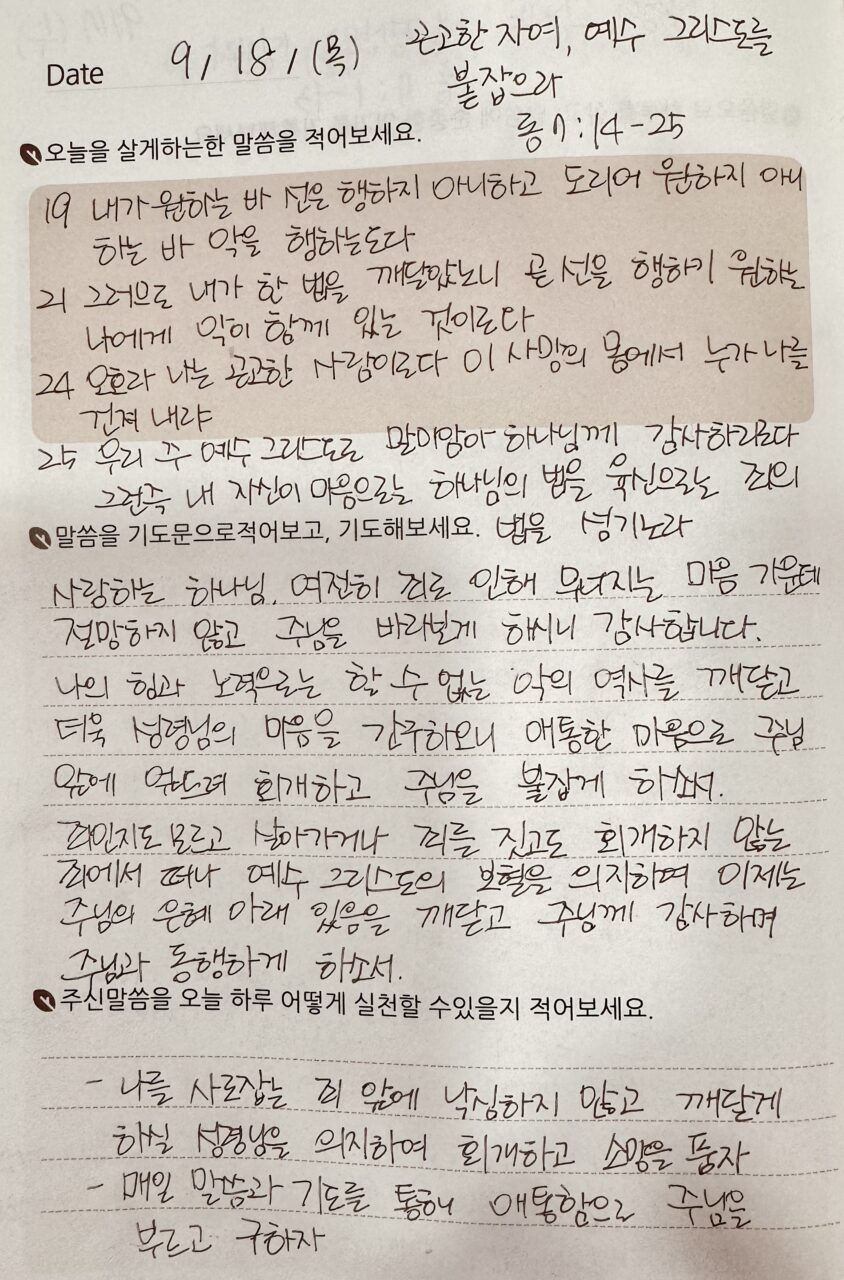 Date 9/18/(목) 곤고한 자여, 예수 그리스도를
붙잡으라
롬 7:14-25
오늘을 살게하는한 말씀을 적어보세요.
19 내가 원하는 바 선은 행하지 아니하고 도리어 원하지 아니
하는 바 악을 행하는도다
21 그러므로 내가 한 법을 깨달았노니 곧 선을 행하기 원하는
나에게 악이 함께 있는 것이로다
24 오호라 나는 곤고한 사람이로다 이 사망의 몸에서 누가 나를
건져 내랴
25 우리 주 예수 그리스도로 말미암아 하나님께 감사하리로다
그런즉 내 자신이 마음으로는 하나님의 법을 육신으로는 죄의
법을 섬기노라
말씀을 기도문으로적어보고, 기도해보세요.
사랑하는 하나님. 여전히 죄로 인해 무너지는 마음 가운데
절망하지 않고 주님을 바라보게 하시니 감사합니다.
나의 힘과 노력으로는 할 수 없는 악의 역사를 깨닫고
더욱 성령님의 마음을 간구하오니 애통한 마음으로 주님
앞에 엎드려 회개하고 주님을 붙잡게 하소서.
죄인지도 모르고 살아가거나 죄를 짓고도 회개하지 않는
죄에서 떠나 예수 그리스도의 보혈을 의지하며 이제는
주님의 은혜 아래 있음을 깨닫고 주님께 감사하며
주님과 동행하게 하소서.
주신말씀을 오늘 하루 어떻게 실천할 수있을지 적어보세요.
- 나를 사로잡는 죄 앞에 낙심하지 않고 깨닫게
하실 성령님을 의지하여 회개하고 소망을 품자
- 매일 말씀과 기도를 통해 애통함으로 주님을
부르고 구하자